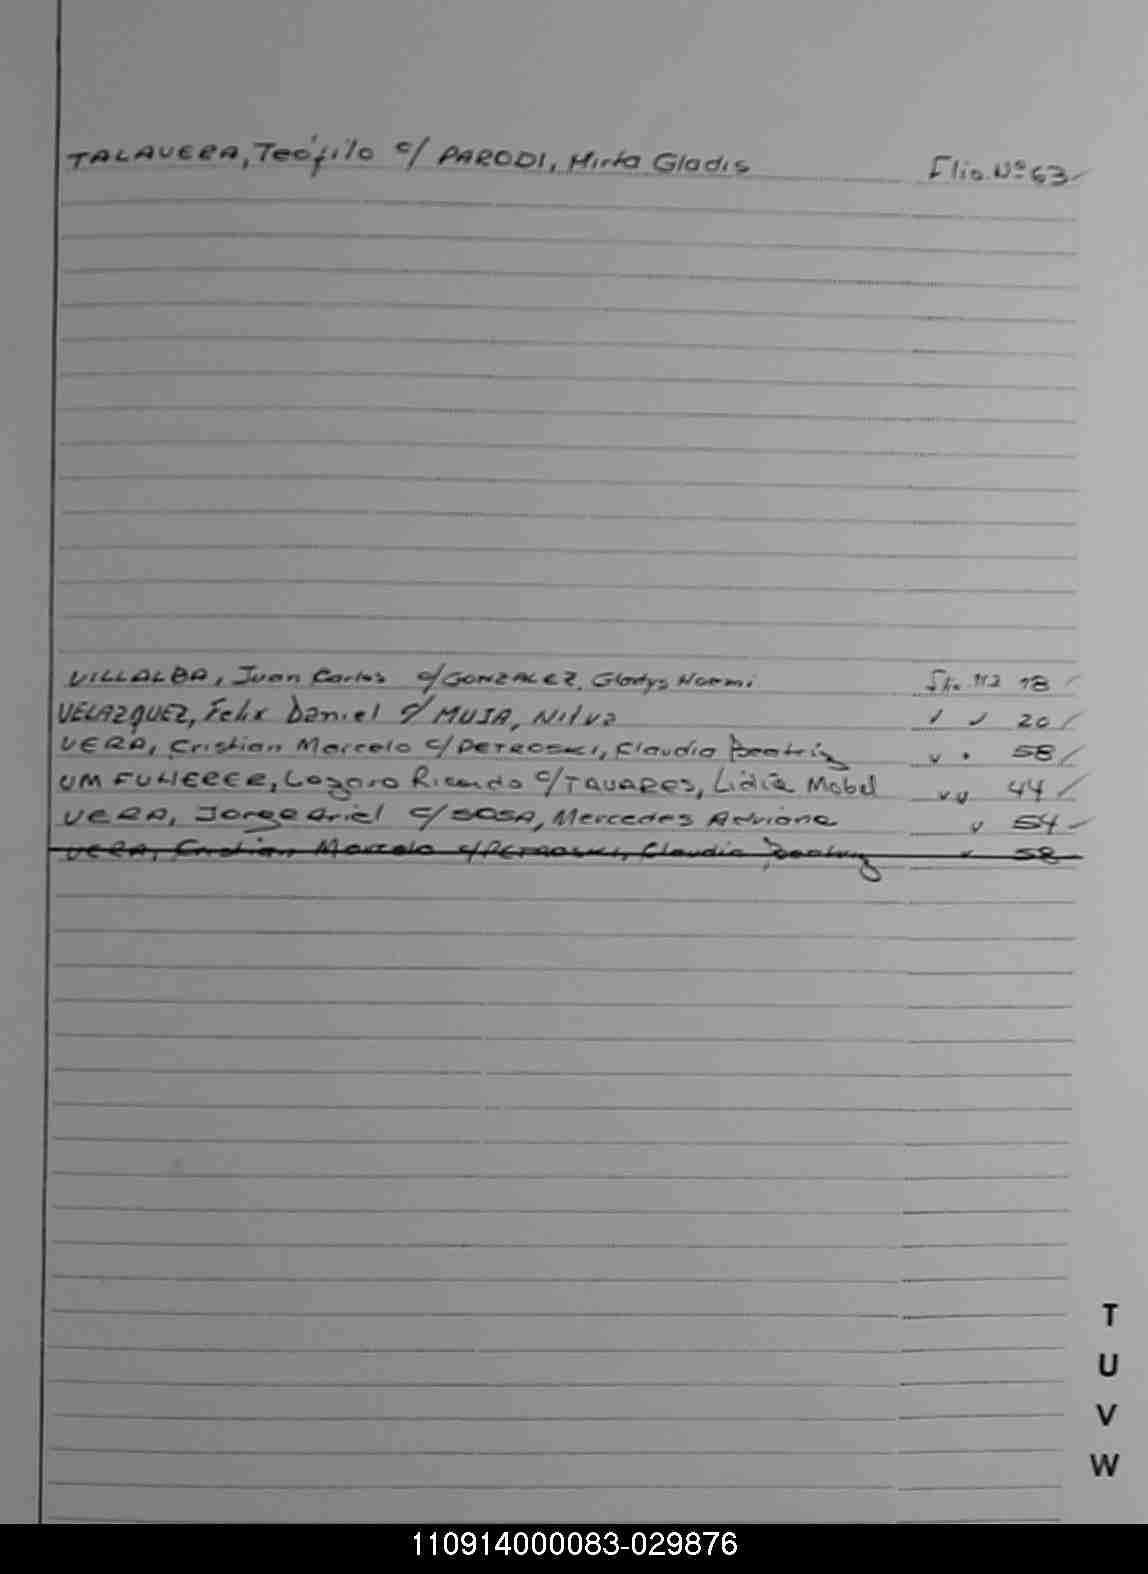 TALAVERA, Teófilo c/ PARODI, Mirta Gladis Flio. Nº 63
VILLALBA, Juan Carlos c/ GONZALEZ, Gladys Noemi 18
VELAZQUEZ, Felix Daniel c/ MUJA, Nilva 20
VERA, Cristian Marcelo c/ PETROSKI, Claudia Beatriz 58
Lazaro Ricardo c/ TAVARES, Lidia Mabel 44
VERA, Jorge Ariel c/ SOSA, Mercedes Adriana 54
VERA, Cristian Marcelo c/ PETROSKI, Claudia Beatriz 58
T
U
V
W
110914000083-029876